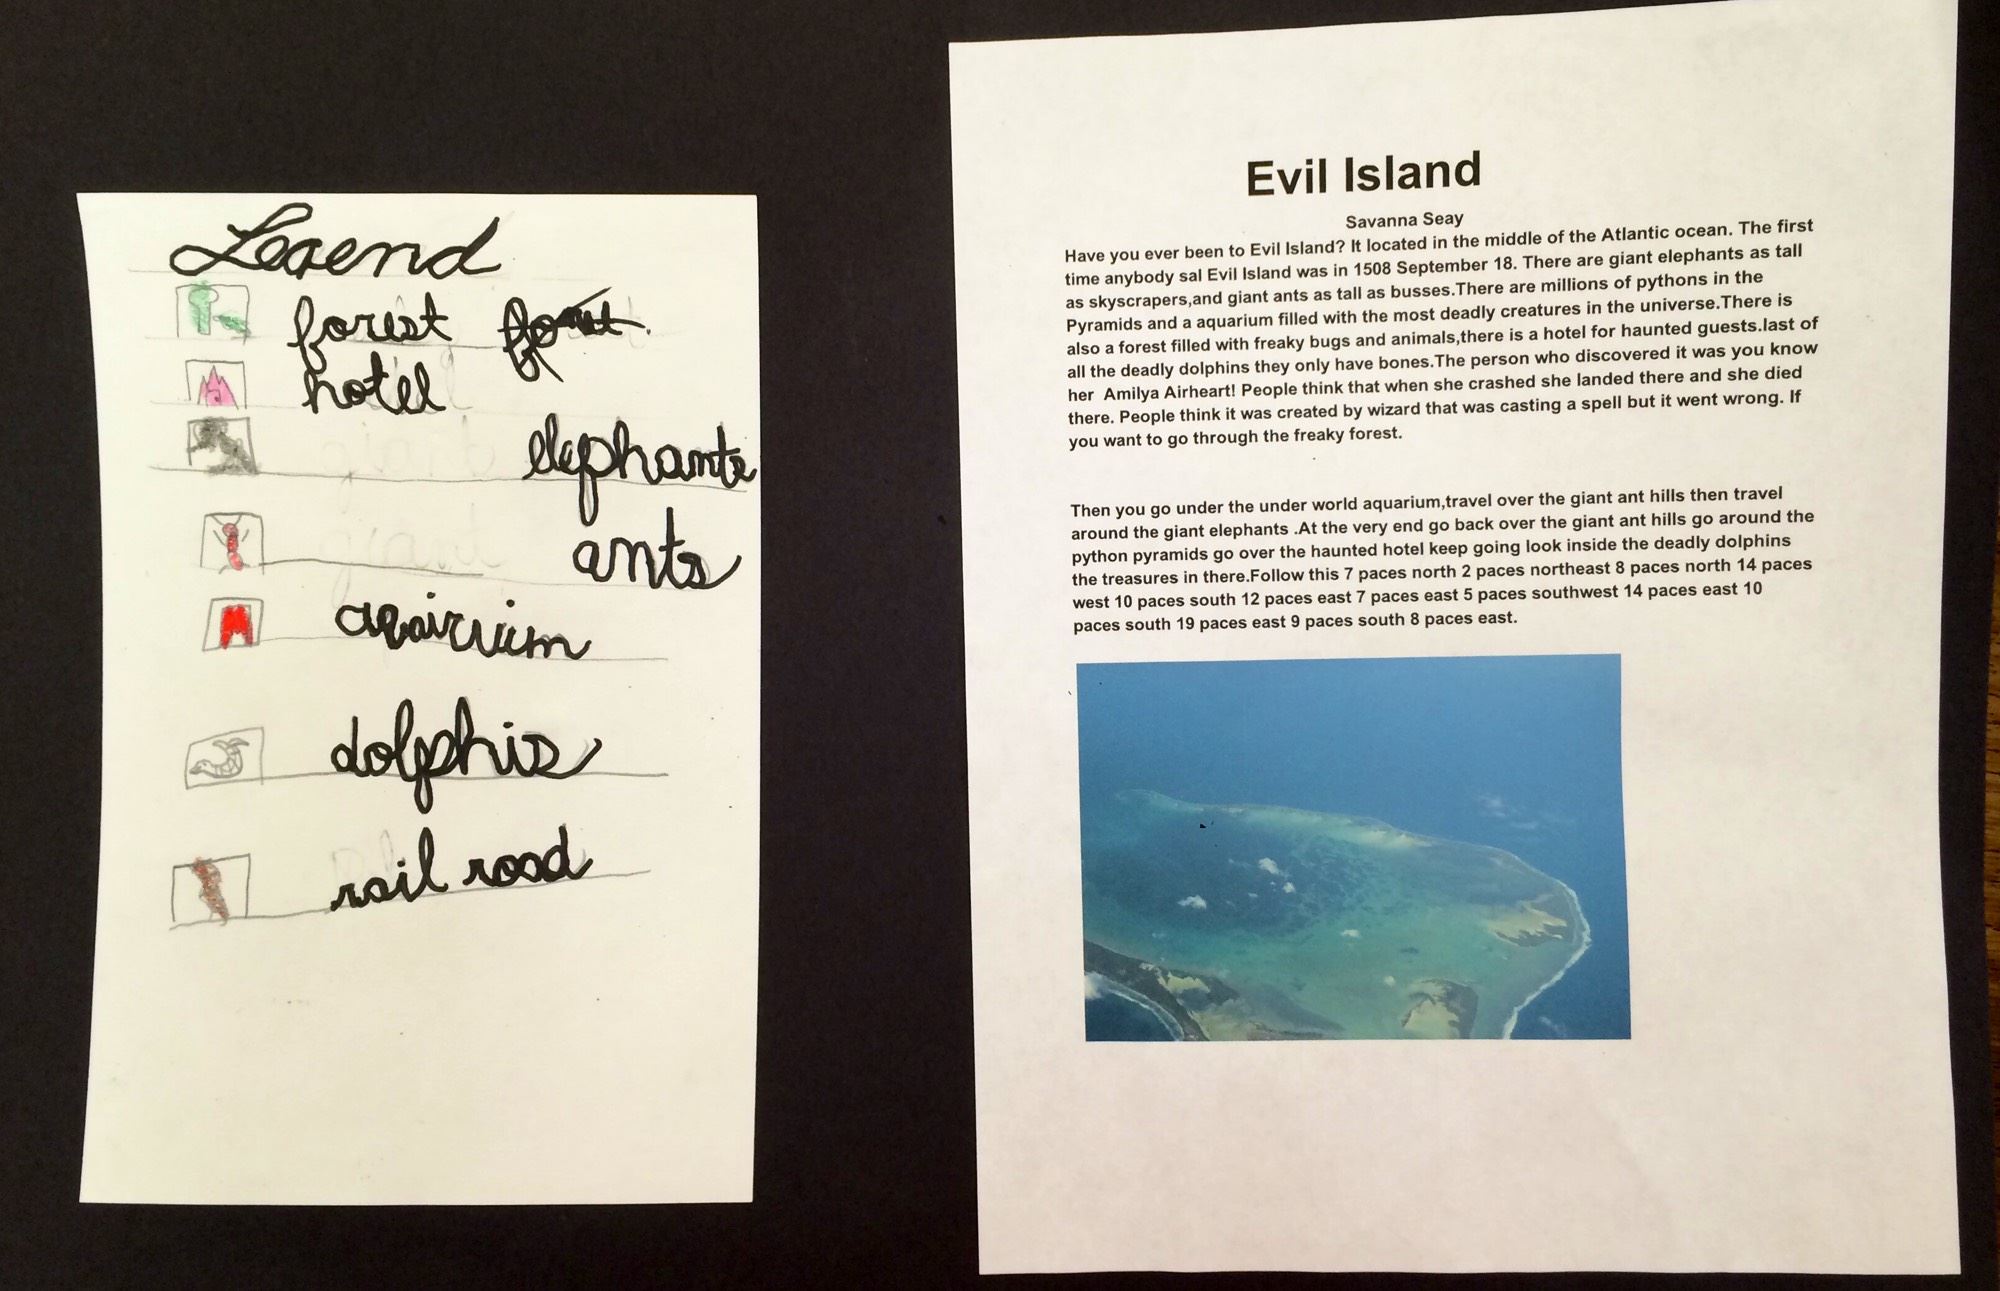 Legend
forest forest.
hotel
elephants
ants
aqairuim
dolphis
rail road
Evil Island
Savanna Seay
Have you ever been to Evil Island? It located in the middle of the Atlantic ocean. The first
time anybody sal Evil Island was in 1508 September 18. There are giant elephants as tall
as skyscrapers,and giant ants as tall as busses.There are millions of pythons in the
Pyramids and a aquarium filled with the most deadly creatures in the universe.There is
also a forest filled with freaky bugs and animals,there is a hotel for haunted guests.last of
all the deadly dolphins they only have bones.The person who discovered it was you know
her Amilya Airheart! People think that when she crashed she landed there and she died
there. People think it was created by wizard that was casting a spell but it went wrong. If
you want to go through the freaky forest.
Then you go under the under world aquarium,travel over the giant ant hills then travel
around the giant elephants .At the very end go back over the giant ant hills go around the
python pyramids go over the haunted hotel keep going look inside the deadly dolphins
the treasures in there.Follow this 7 paces north 2 paces northeast 8 paces north 14 paces
west 10 paces south 12 paces east 7 paces east 5 paces southwest 14 paces east 10
paces south 19 paces east 9 paces south 8 paces east.